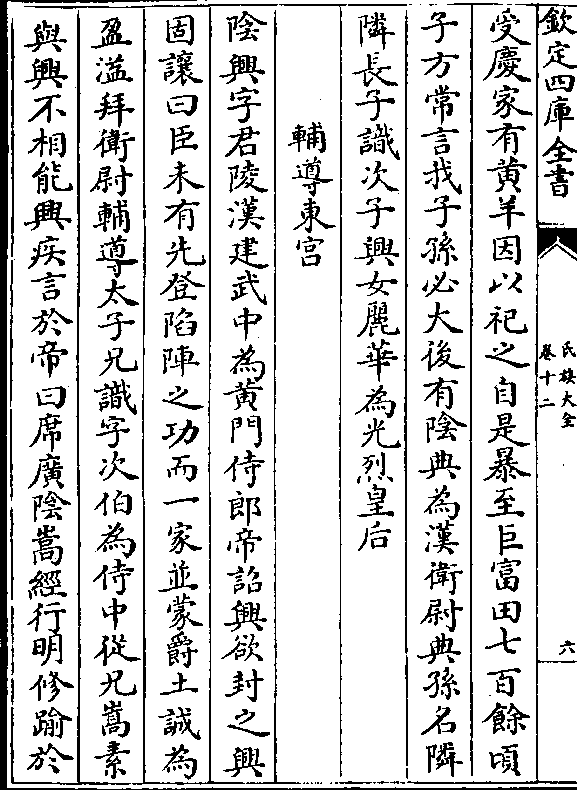 欽定四庫全書
氏族大全
卷十二
六
受慶家有黄羊因以祀之自是暴至巨富田七百餘頃
子方常言我子孫必大後有陰典為漢衛尉典孫名隣
隣長子識次子興女麗華為光烈皇后
輔導東宫
陰興字君陵漢建武中為黄門侍郎帝詔興欲封之興
固讓曰臣未有先登陷陣之功而一家並蒙爵土誠為
盈溢拜衛尉輔導太子兄識字次伯為侍中從兄嵩素
與興不相能興疾言於帝曰席廣陰嵩經行明修踰於